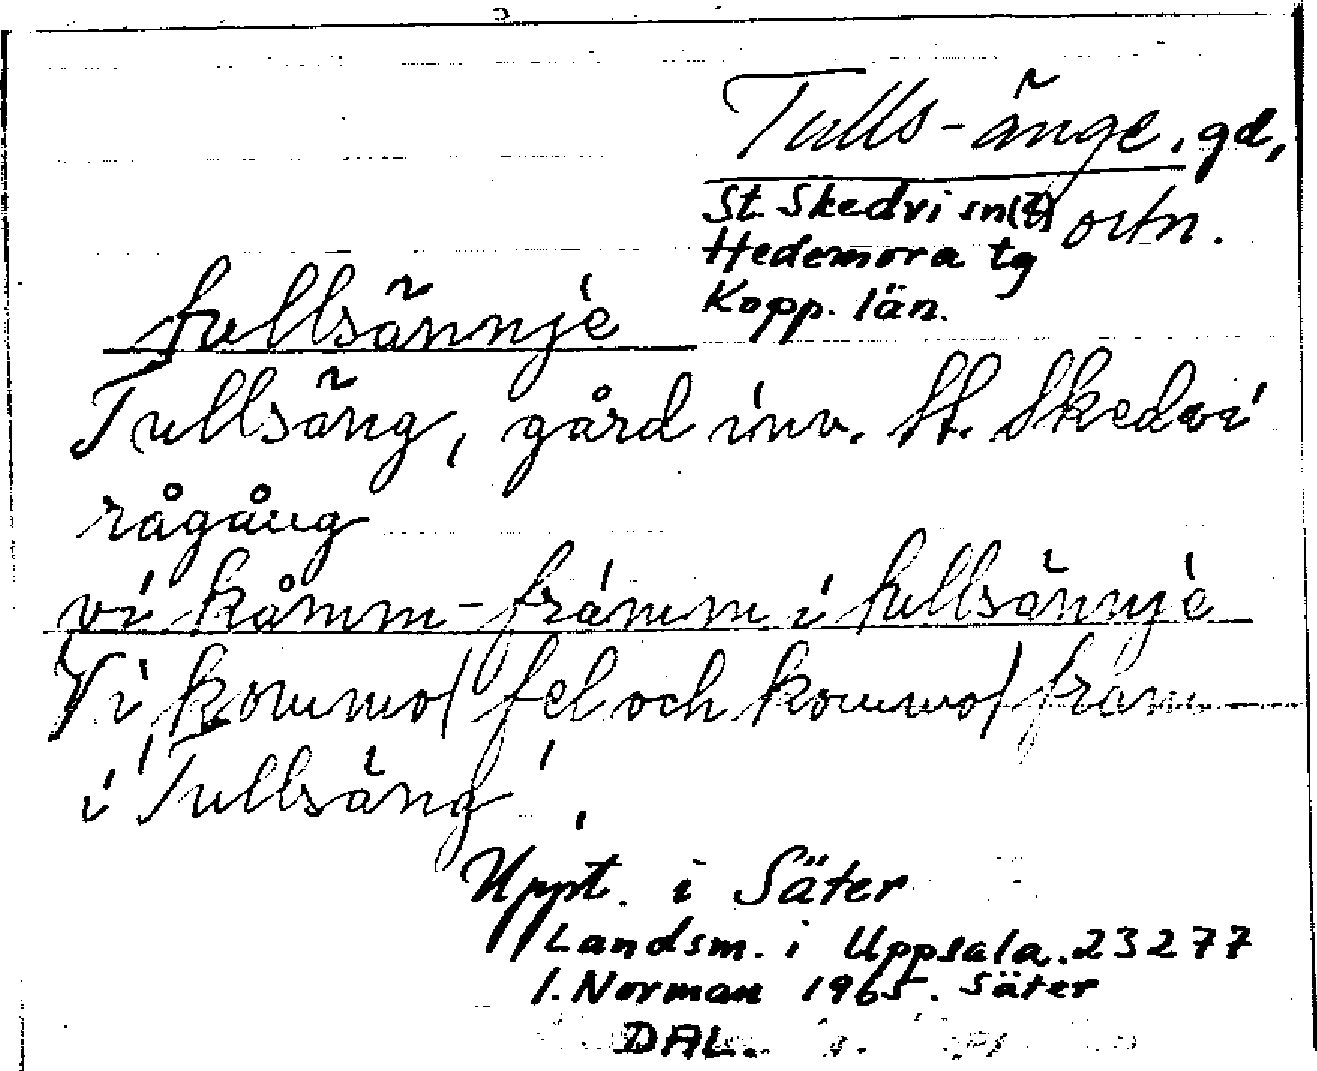 Tulls-änge. gd,
St. Skedvi sn(?) ortn.
Hedemora tg
Kopp. län.
tullsännjè
Tullsäng, gård inv. St. Skedvi
rågång
vi kåmm-frámm i tullsännjè
Vi kommo/ fel och kommo/ fram
i 'Tullsäng'.
Uppt. i Säter
Landsm. i Uppsala. 23277
I. Norman 1965. Säter
DAL.